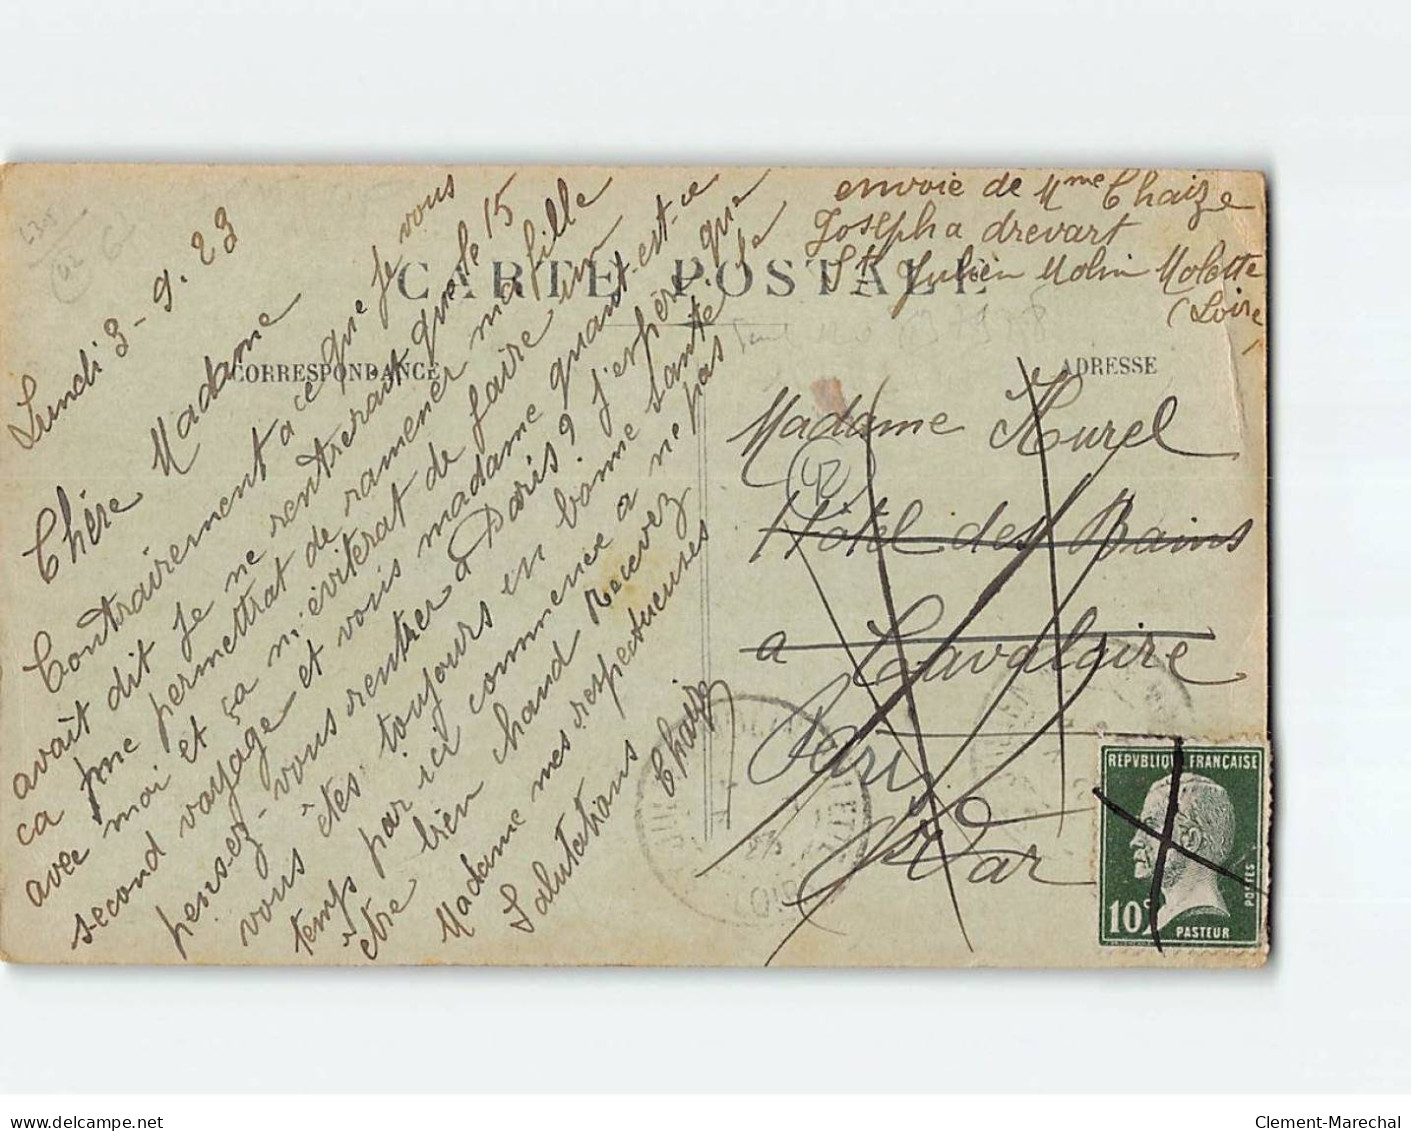 Lundi 3-9.23
Chère Madame
Contrairement a ce que je vous
avait dit je ne rentrerait que le 15
ca me permettrat de ramener ma fille
avec moi et ça m'éviterat de faire un
second voyage et vous madame quant-est-ce
pensez-vous rentrer a Paris? j'espère que
vous êtes toujours en bonne santé le
temps par ici commence a ne pas
être bien chaud Recevez
Madame mes respectueuses
Salutations Chaize
CARTE POSTALE
CORRESPONDANCE
ADRESSE
envoie de Mme Chaize
Josepha drevart
St Julien Molin Molette
(Loire)
Madame Hurel
42
Hôtel des Bains
a Cavalaire
Paris
Var
REPVBLIQVE FRANÇAISE
POSTES
10c
PASTEUR
delcampe.net
Clement-Marechal